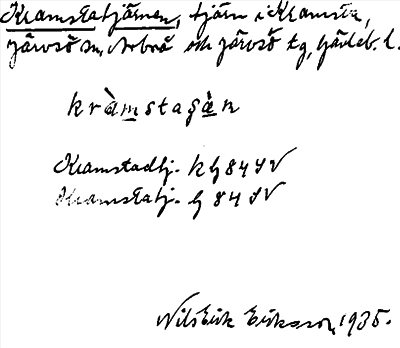 Kramstatjärnen, tjärn i Kramsta,
Järvsö sn, Arbrå och Järvsö tg, Gävleb. l.
kràmstaʂàn
Kramstadtj. kG 84 SV
Kramstatj. G 84 SV
Nils Erik Eriksson, 1935.